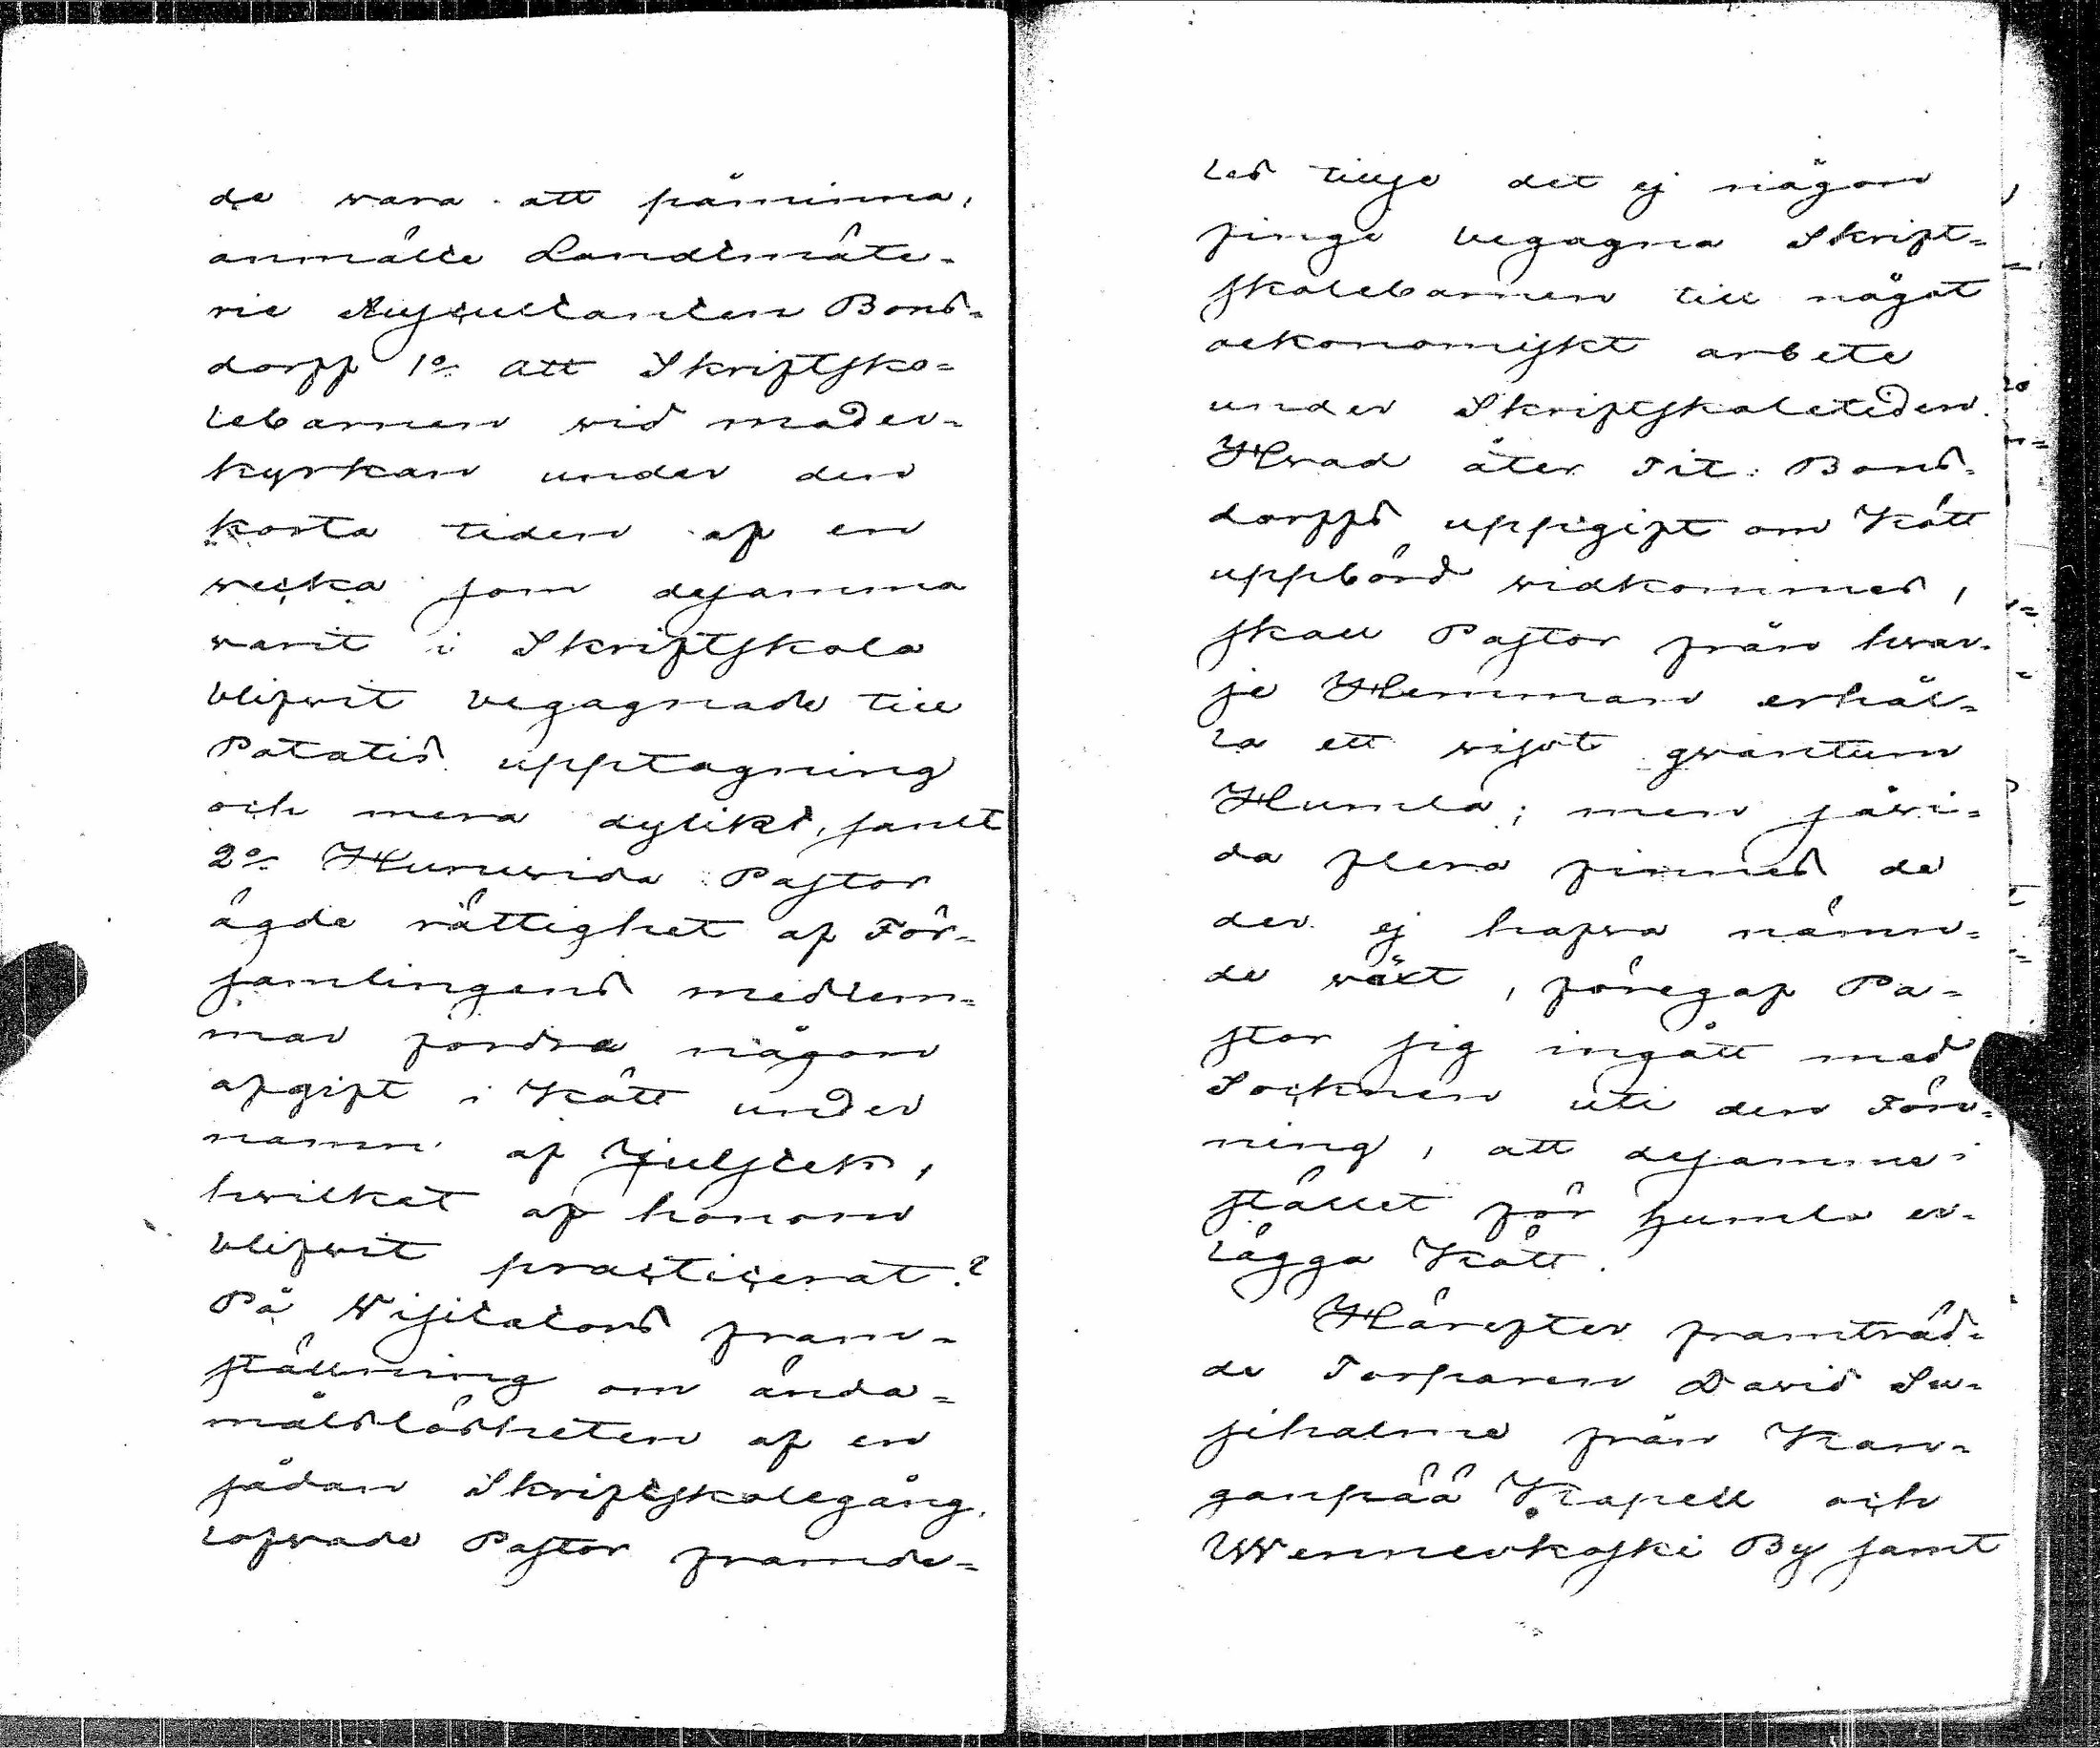 de wara att påminna,
anmälte Landtmäte-
rie Auscultanten Bons-
dorff 1o att Skriftsko-
lebarnen wid moder-
kyrkan under den
korta tiden af en
wecka som desamma
warit i Skriftskola
blifwit begagnade till
Potatis upptagning
och mera dylikt, samt
2o Huruwida Pastor
ägde rättighet af För-
samlingens medlem-
mar fordra någon
afgift i Kött under
namn af Julstek,
hwilket af honom
blifwit practicerat?
På Wisitators fram-
ställning om ända-
målslösheten af en
sådan Skriftskolegång,
lofwade Pastor framde-
les tillse det ej någon
finge begagna Skrift-
skolebarnen till något
oekonomiskt arbete
under Skriftskoletiden.
Hwad åter Tit: Bons-
dorffs uppgift om Kött
uppbörd widkommer,
skall Pastor från hwar-
je Hemman erhål-
la ett wisst qwantum
Humla; men såwi-
da flera finnes de
der ej hafwa nämn-
de wäxt, föregaf Pa-
stor sig ingått med
Socknen uti den Före-
ning, att desamme i
stället för humla er-
lägga Kött.
Härefter framträd-
de Torparen David Su-
siholma från Kan-
ganpää Kapell och
Wennerkoski By samt